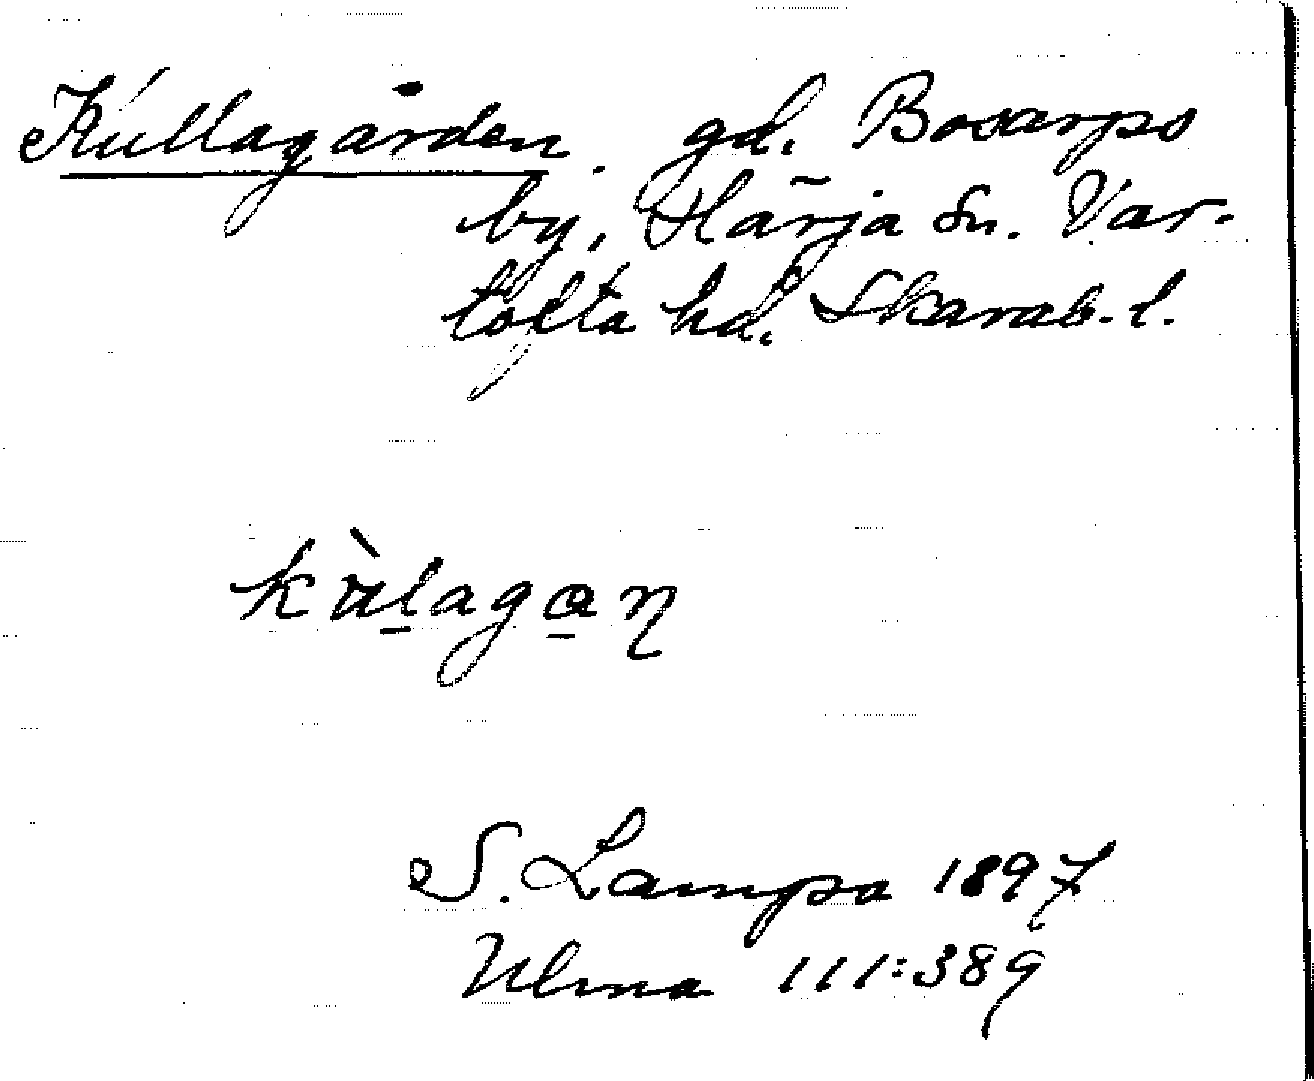 Kullagården. gd. Bosarps
by, Härja sn. Var-
tofta hd. Skarab. l.
kùlagan
S. Lampa 1897
Ulma 111:389